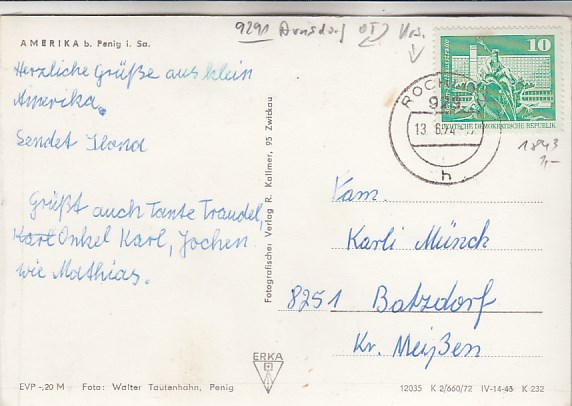 9291 Arnsdorf
AMERIKA b. Penig i. Sa.
10
DEUTSCHE DEMOKRATISCHE REPUBLIK
ROCHLITZ
13.6.74
h
1843
Herzliche Grüße aus klein
Amerika.
Sendet Ilona
Grüßt auch Tante Traudel,
Karl Onkel Karl, Jochen
wie Mathias.
Fotografischer Verlag R. Kallmer, 95 Zwickau
Fam.
Karli Münch
8251 Batzdorf
Kr. Meißen
ERKA
EVP -,20 M Foto: Walter Tautenhahn, Penig
12035 K 2/660/72 IV-14-45 K 232